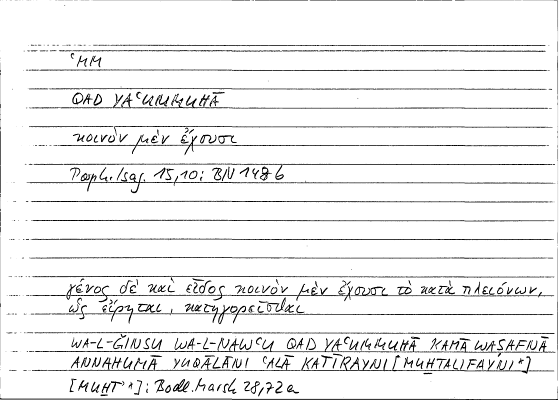 ʿMM
QAD YAʿUMMUHĀ
κοινὸν μὲν ἔχουσι
Porph. Isag. 15,10: BN 148b
γένος δὲ καὶ εἶδος κοινὸν μὲν ἔχουσι τὸ κατὰ πλειόνων,
ὡς εἴρηται, κατηγορεῖσθαι
WA-L-ǦINSU WA-L-NAWʿU QAD YAʿUMMUHĀ KAMĀ WAṢAFNĀ
ANNAHUMĀ YUQĀLĀNI ʿALĀ KATĪRAYNI [MUḪTALIFAYNI*]
[MUḪT’*]: Bodl. Marsh 28,72a